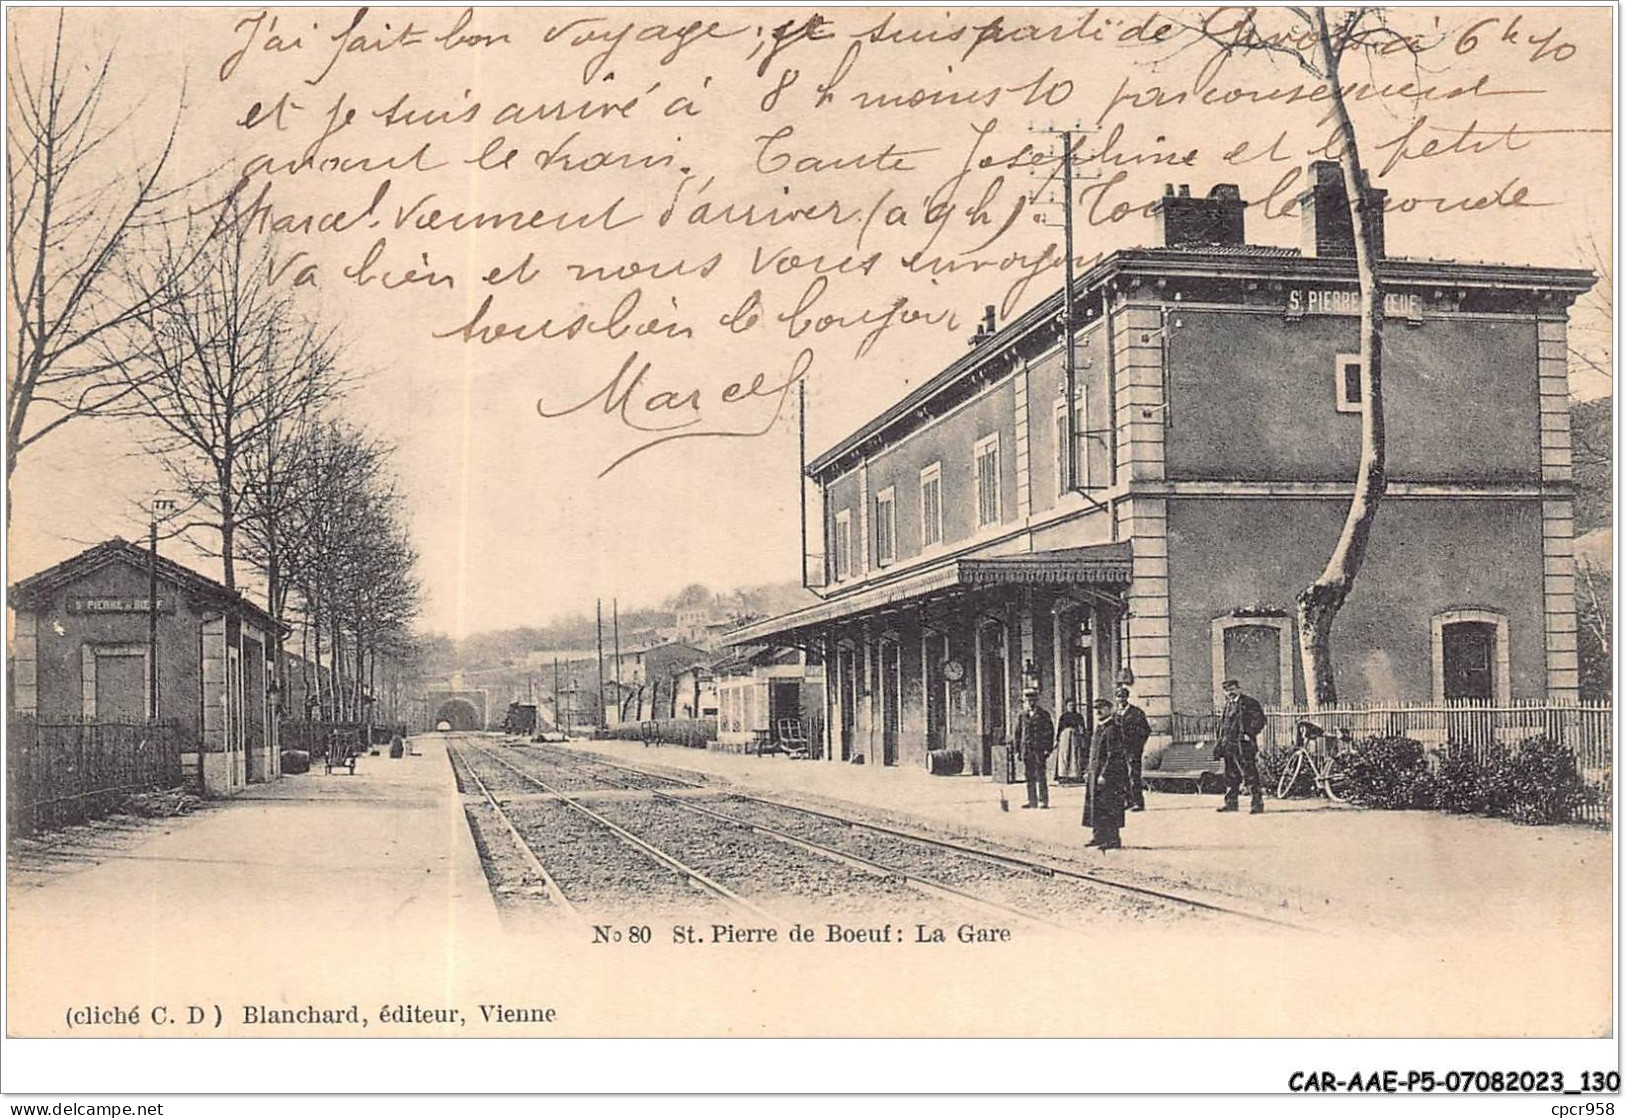 J'ai fait bon voyage; je suis parti de Givors à 6 h 10
et je suis arrivé à 8 h moins 10 par conséquend
avant le train. Tante Josephine et le petit
Marcel viennent d'arriver (à 9 h). Tout le monde
va bien et nous vous envoyons
tous bien le bonjour
Marcel
ST PIERRE BŒUF
ST PIERRE DE BŒUF
No 80 St. Pierre de Boeuf: La Gare
(cliché C. D ) Blanchard, éditeur, Vienne
CAR-AAE-P5-07082023_130
delcampe.net
cpcr958